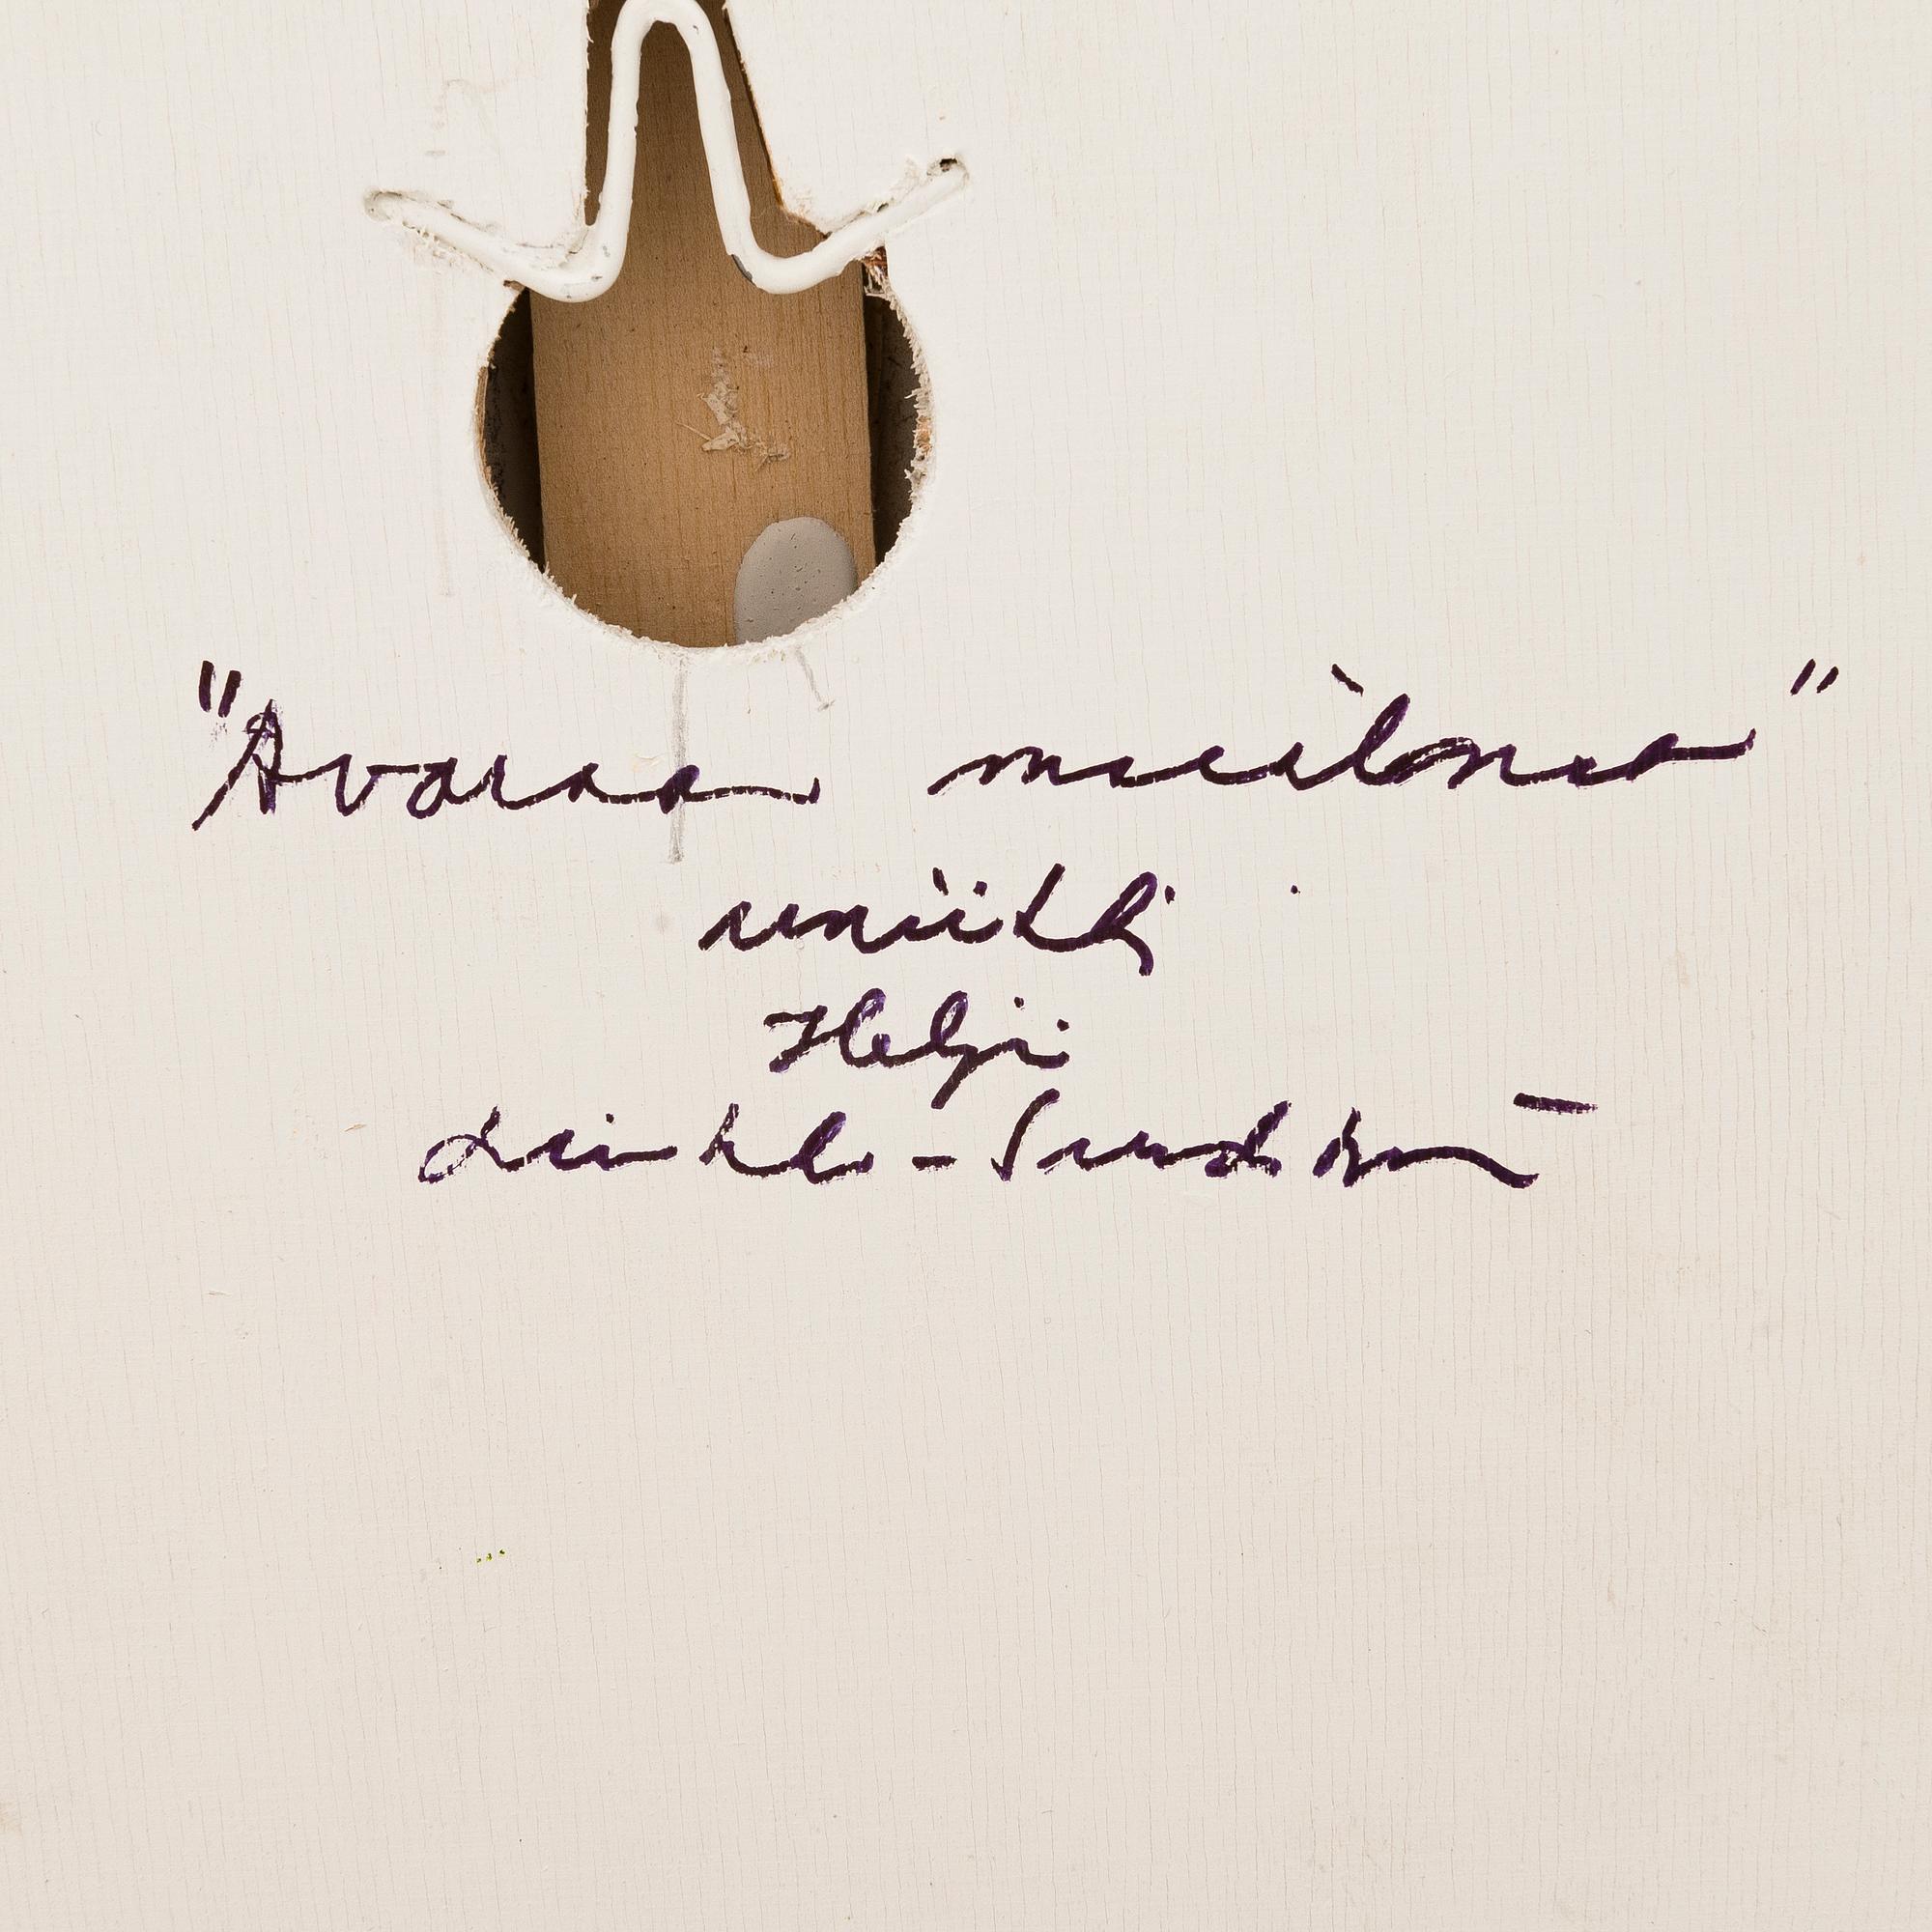 "Avaraa maailmaa"
uniikki
Heljä
Liukko-Sundström